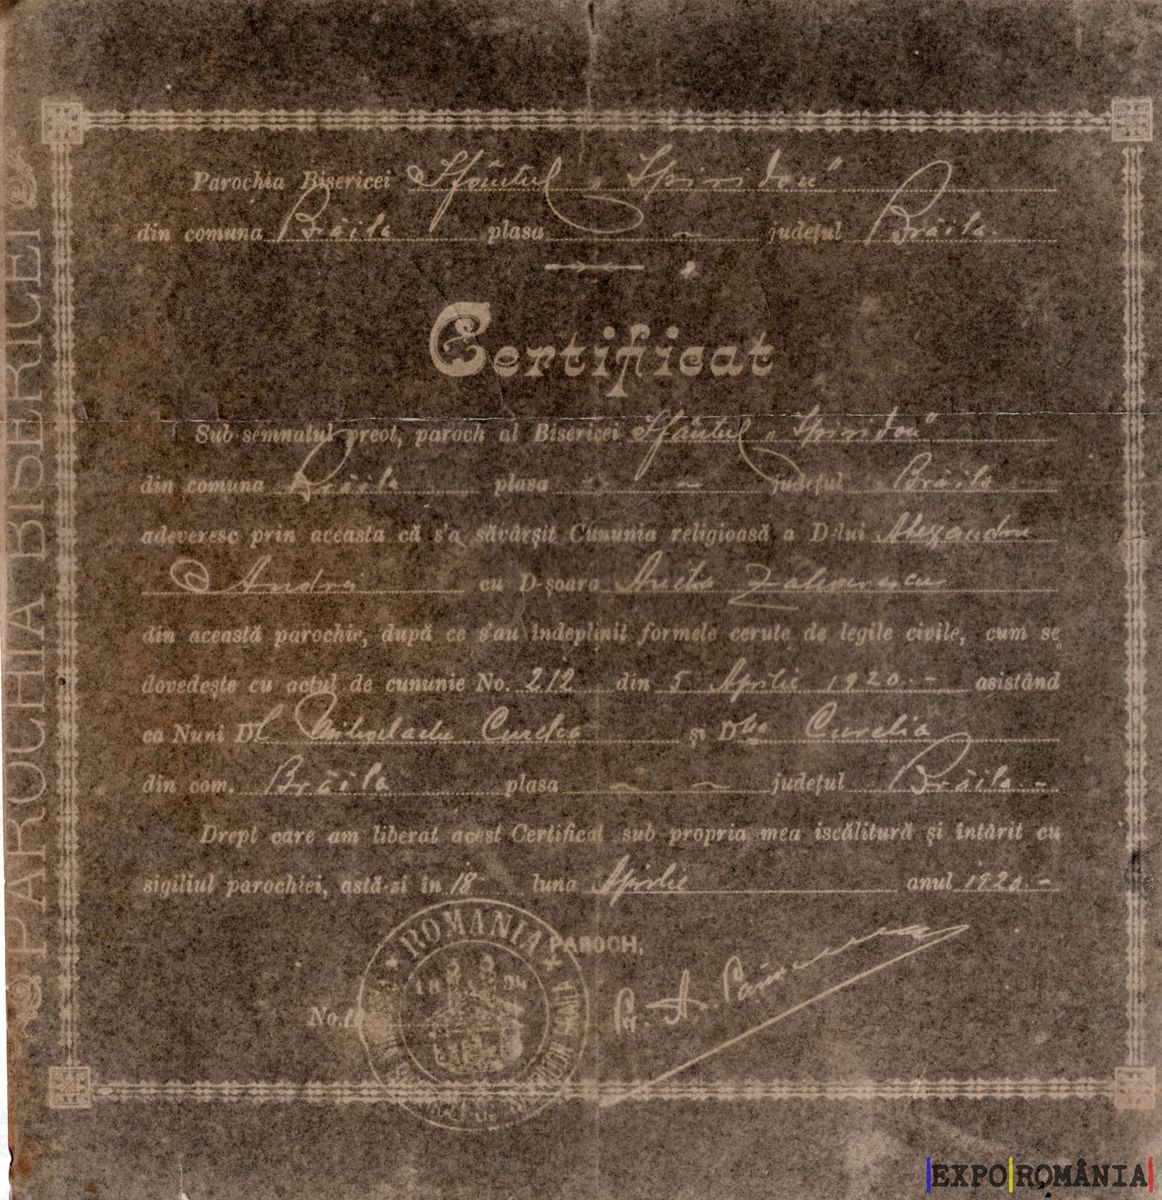 PAROCHIA BISERICEI
Parochia Bisericei Sfântul „Spiridon”
din comuna Brăila plasa județul Brăila.
Certificat
Sub semnatul preot, paroch al Bisericei Sfântul „Spiridon”
din comuna Brăila plasa județul Brăila
adeveresc prin aceasta că s'a săvârșit Cununia religioasă a D-lui Alexandru
Andrei cu D-șoara
din această parochie, după ce s'au îndeplinit formele cerute de legile civile, cum se
dovedește cu actul de cununie No. 212 din 5 Aprilie 1920.- asistând
ca Nuni Dl și Dna
din com. Brăila plasa județul Brăila-
Drept care am liberat acest Certificat sub propria mea iscălitură și întărit cu
sigiliul parochiei, astă-zi în 18 luna Aprilie anul 1920.-
ROMANIA
PAROCH,
18 94
No.
Pr.
EXPO ROMÂNIA